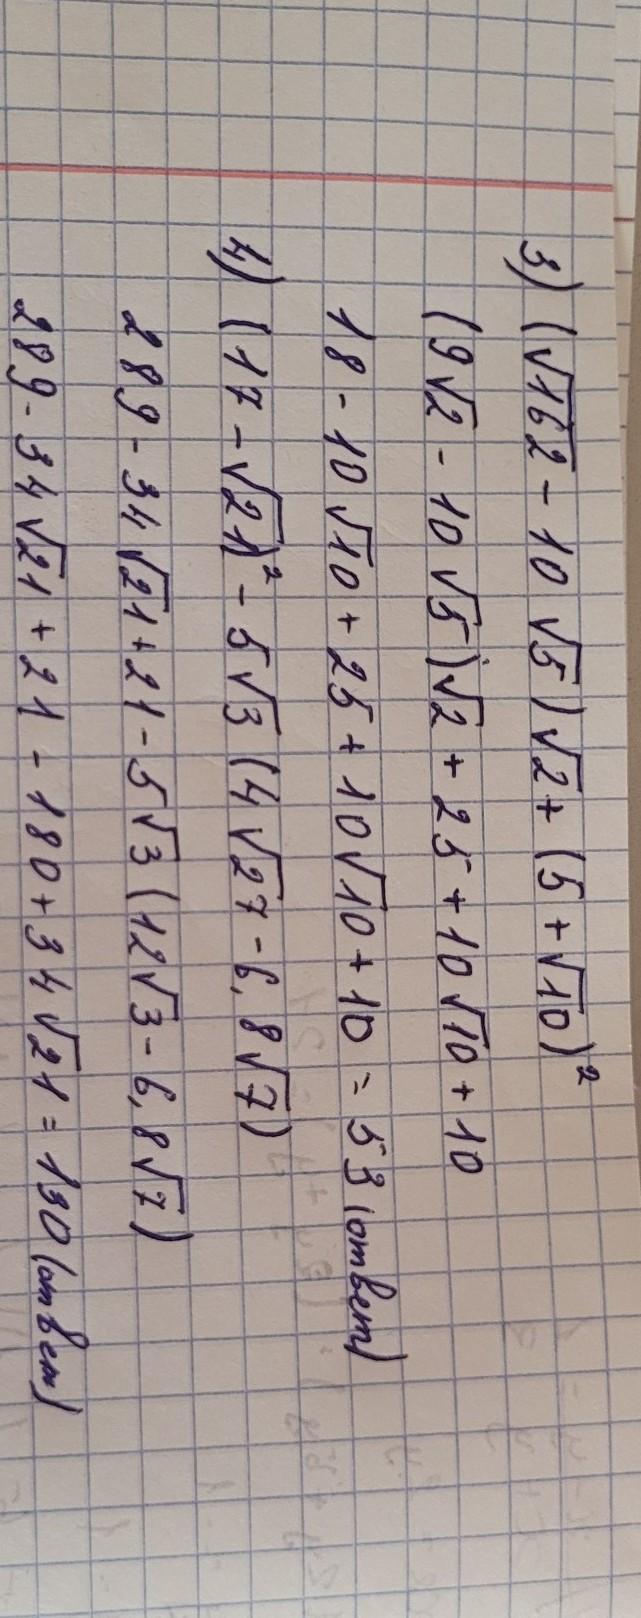 3) (√162 - 10√5)√2 + (5 + √10)²
(9√2 - 10√5)√2 + 25 + 10√10 + 10
18 - 10√10 + 25 + 10√10 + 10 = 53 (ответ)
4) (17 - √21)² - 5√3 (4√27 - 6,8√7)
289 - 34√21 + 21 - 5√3 (12√3 - 6,8√7)
289 - 34√21 + 21 - 180 + 34√21 = 130 (ответ)